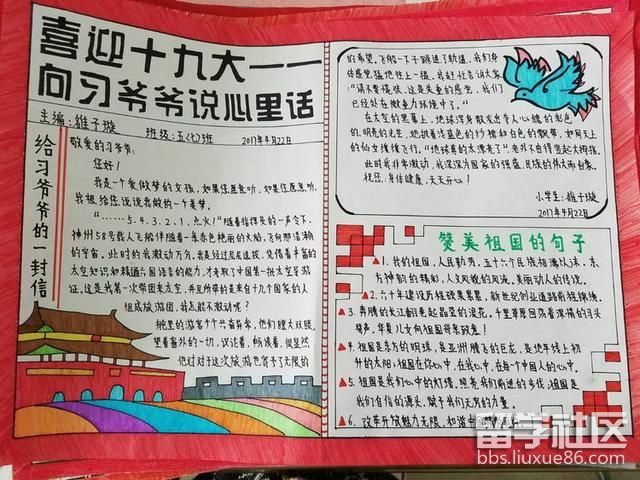 喜迎十九大——
向习爷爷说心里话
主编：雒子璇 班级：五(七)班 2017年4月22日
给习爷爷的一封信
敬爱的习爷爷：
您好！
我是一个爱做梦的女孩，如果您愿意听，如果您愿意听，
我想给您说说我做的一个美梦。
“……5、4、3、2、1，点火！”随着指挥员的一声令下，
神州58号载人飞船伴随着一条赤色艳丽的火焰，飞向那浩瀚
的宇宙，此时的我激动万分，
太空知识和精通六国语言的能力，才考取了中国第一批太空导游
证，这是我第一次带团来太空，并且所带的是来自十九个国家的人
组成旅游团，我怎能不激动呢？
舱里的游客个个兴奋异常，他们瞪大双眼，
望着窗外的一切，议论着，畅谈着，很显然
他们对于这次旅游也寄予了无限的
的希望。飞船一下子跳进了轨道，我们身
体感觉猛地往上一提，我赶忙告诉大家：
“请不要慌张，这是失重的感觉，我们
已经处在微重力环境中了。”
在太空的黑幕上，地球浑身散发出夺人心魄的彩色
的、明亮的光芒，她披着浅蓝色的纱裙和白色的飘带，如同天上
的仙女缓缓飞行，“地球真的太漂亮了”，老外不自信竖起大拇指，
此时我非常激动，我深深为国家的强盛、民族的伟大而自豪。
祝您：身体健康，天天开心！
小学生：雒子璇
2017年4月22日
赞美祖国的句子
1、我的祖国，人民勤劳，五十六个民族相濡以沫，东
方神韵的精彩，人文风貌的风流。美丽动人的传说。
2、六十年建设历程硕果累累，新世纪创业道路前程锦绣。
3、奔腾的长江翻卷起晶莹的浪花，千里草原回荡着深情的马头
琴声，华夏儿女向祖国母亲致意！
4、祖国是东方的明珠，是亚洲腾飞的巨龙，是地平线上初
升的太阳；祖国在你心中，在我心中，在每一个中国人的心中。
5、祖国是我们心中的灯塔，照亮我们前进的步伐；祖国是
我们自信的源头，赋予我们无穷的力量。
6、改革开放魅力无限，和谐中
留学社区
bbs.liuxue86.com